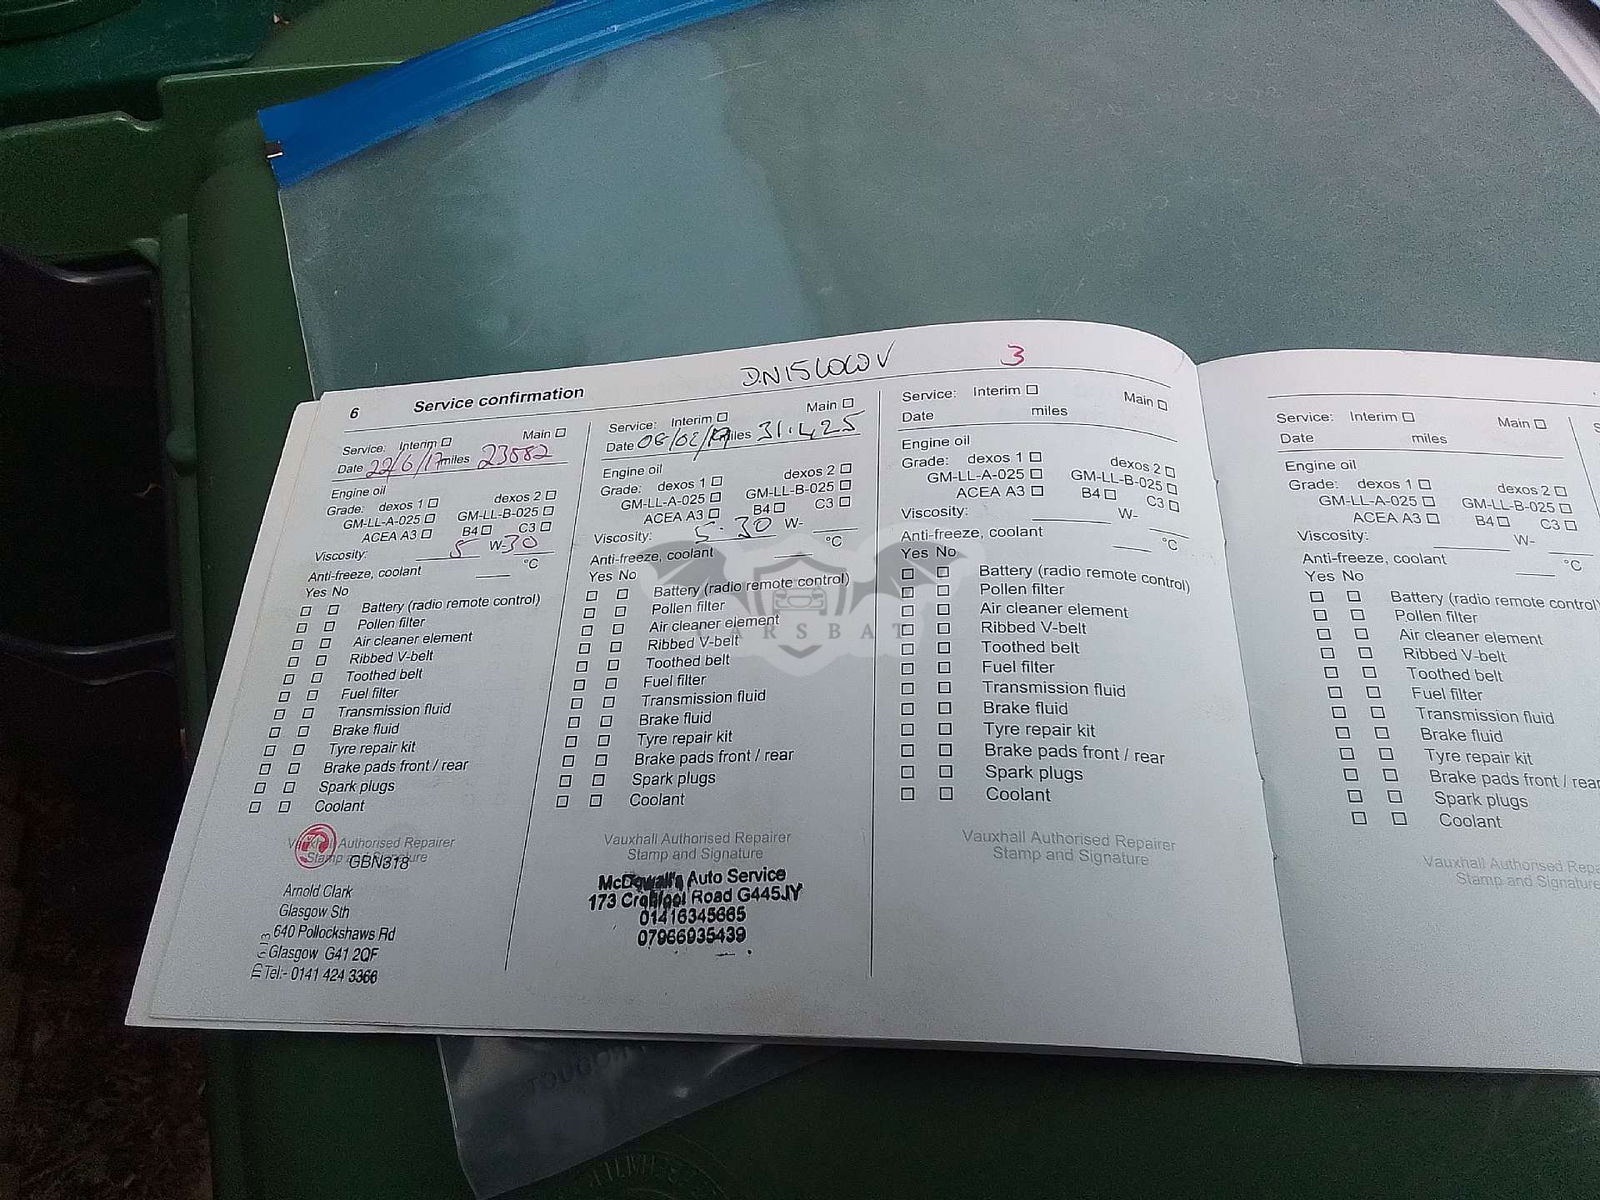 6 Service confirmation
DN15LOCOV 3
Service: Interim □ Main □
Date 22/6/17 miles 23582
Engine oil
Grade: dexos 1 □ dexos 2 □
GM-LL-A-025 □ GM-LL-B-025 □
ACEA A3 □ B4 □ C3 □
Viscosity: 5 W-30
Anti-freeze, coolant ____ °C
Yes No
□ □ Battery (radio remote control)
□ □ Pollen filter
□ □ Air cleaner element
□ □ Ribbed V-belt
□ □ Toothed belt
□ □ Fuel filter
□ □ Transmission fluid
□ □ Brake fluid
□ □ Tyre repair kit
□ □ Brake pads front / rear
□ □ Spark plugs
□ □ Coolant
Vauxhall Authorised Repairer
Stamp and Signature
GBN318
Arnold Clark
Glasgow Sth
640 Pollockshaws Rd
Glasgow G41 2QF
Tel:- 0141 424 3366
Service: Interim □ Main □
Date 08/02/19 miles 31.425
Engine oil
Grade: dexos 1 □ dexos 2 □
GM-LL-A-025 □ GM-LL-B-025 □
ACEA A3 □ B4 □ C3 □
Viscosity: 5.30 W- ____
Anti-freeze, coolant ____ °C
Yes No
□ □ Battery (radio remote control)
□ □ Pollen filter
□ □ Air cleaner element
□ □ Ribbed V-belt
□ □ Toothed belt
□ □ Fuel filter
□ □ Transmission fluid
□ □ Brake fluid
□ □ Tyre repair kit
□ □ Brake pads front / rear
□ □ Spark plugs
□ □ Coolant
Vauxhall Authorised Repairer
Stamp and Signature
Auto Service
173 Road G445JY
01416345665
07966935439
Service: Interim □ Main □
Date miles
Engine oil
Grade: dexos 1 □ dexos 2 □
GM-LL-A-025 □ GM-LL-B-025 □
ACEA A3 □ B4 □ C3 □
Viscosity: ____ W- ____
Anti-freeze, coolant ____ °C
Yes No
□ □ Battery (radio remote control)
□ □ Pollen filter
□ □ Air cleaner element
□ □ Ribbed V-belt
□ □ Toothed belt
□ □ Fuel filter
□ □ Transmission fluid
□ □ Brake fluid
□ □ Tyre repair kit
□ □ Brake pads front / rear
□ □ Spark plugs
□ □ Coolant
Vauxhall Authorised Repairer
Stamp and Signature
Service: Interim □ Main □
Date miles
Engine oil
Grade: dexos 1 □ dexos 2 □
GM-LL-A-025 □ GM-LL-B-025 □
ACEA A3 □ B4 □ C3 □
Viscosity: ____ W- ____
Anti-freeze, coolant ____ °C
Yes No
□ □ Battery (radio remote control)
□ □ Pollen filter
□ □ Air cleaner element
□ □ Ribbed V-belt
□ □ Toothed belt
□ □ Fuel filter
□ □ Transmission fluid
□ □ Brake fluid
□ □ Tyre repair kit
□ □ Brake pads front / rear
□ □ Spark plugs
□ □ Coolant
Vauxhall Authorised Repa
Stamp and Signature
ARSBAT